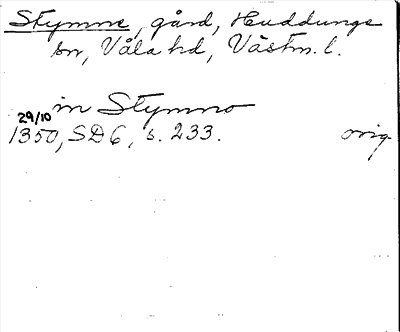 Stymne, gård, Huddungs
sn, Våla hd, Västm. l.
in Stymno
29/10
1350, SD 6, s. 233. orig.